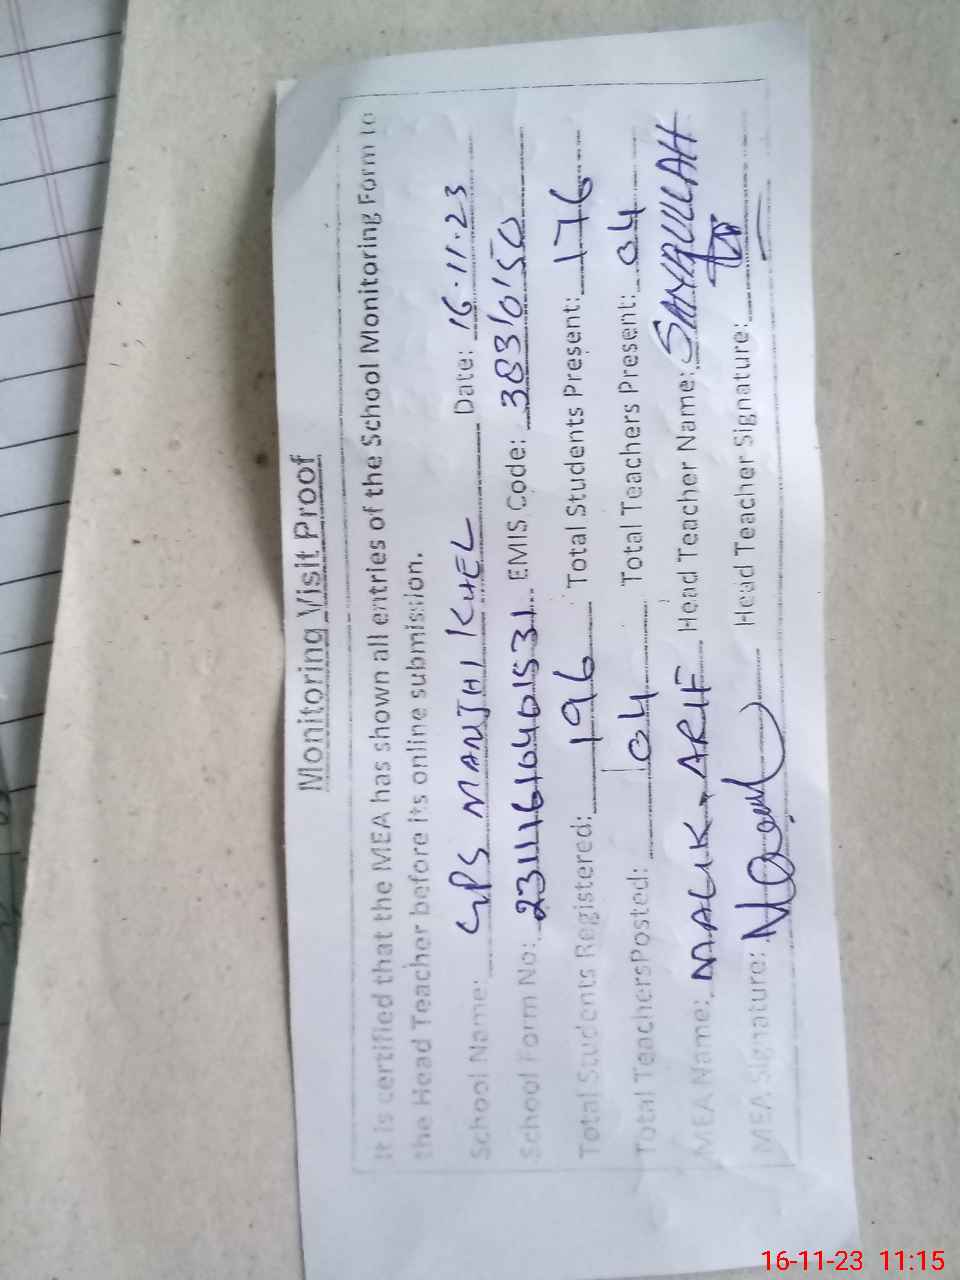 Monitoring Visit Proof
It is certified that the MEA has shown all entries of the School Monitoring Form to
the Head Teacher before its online submission.
School Name: GPS MANJHI KHEL Date: 16.11.23
School Form No: EMIS Code: 38310150
Total Students Registered: 196 Total Students Present: 176
Total TeachersPosted: 04 Total Teachers Present: 04
MEA Name: MALIK. ARIF Head Teacher Name: SAMIULLAH
MEA Signature: Head Teacher Signature:
16-11-23 11:15